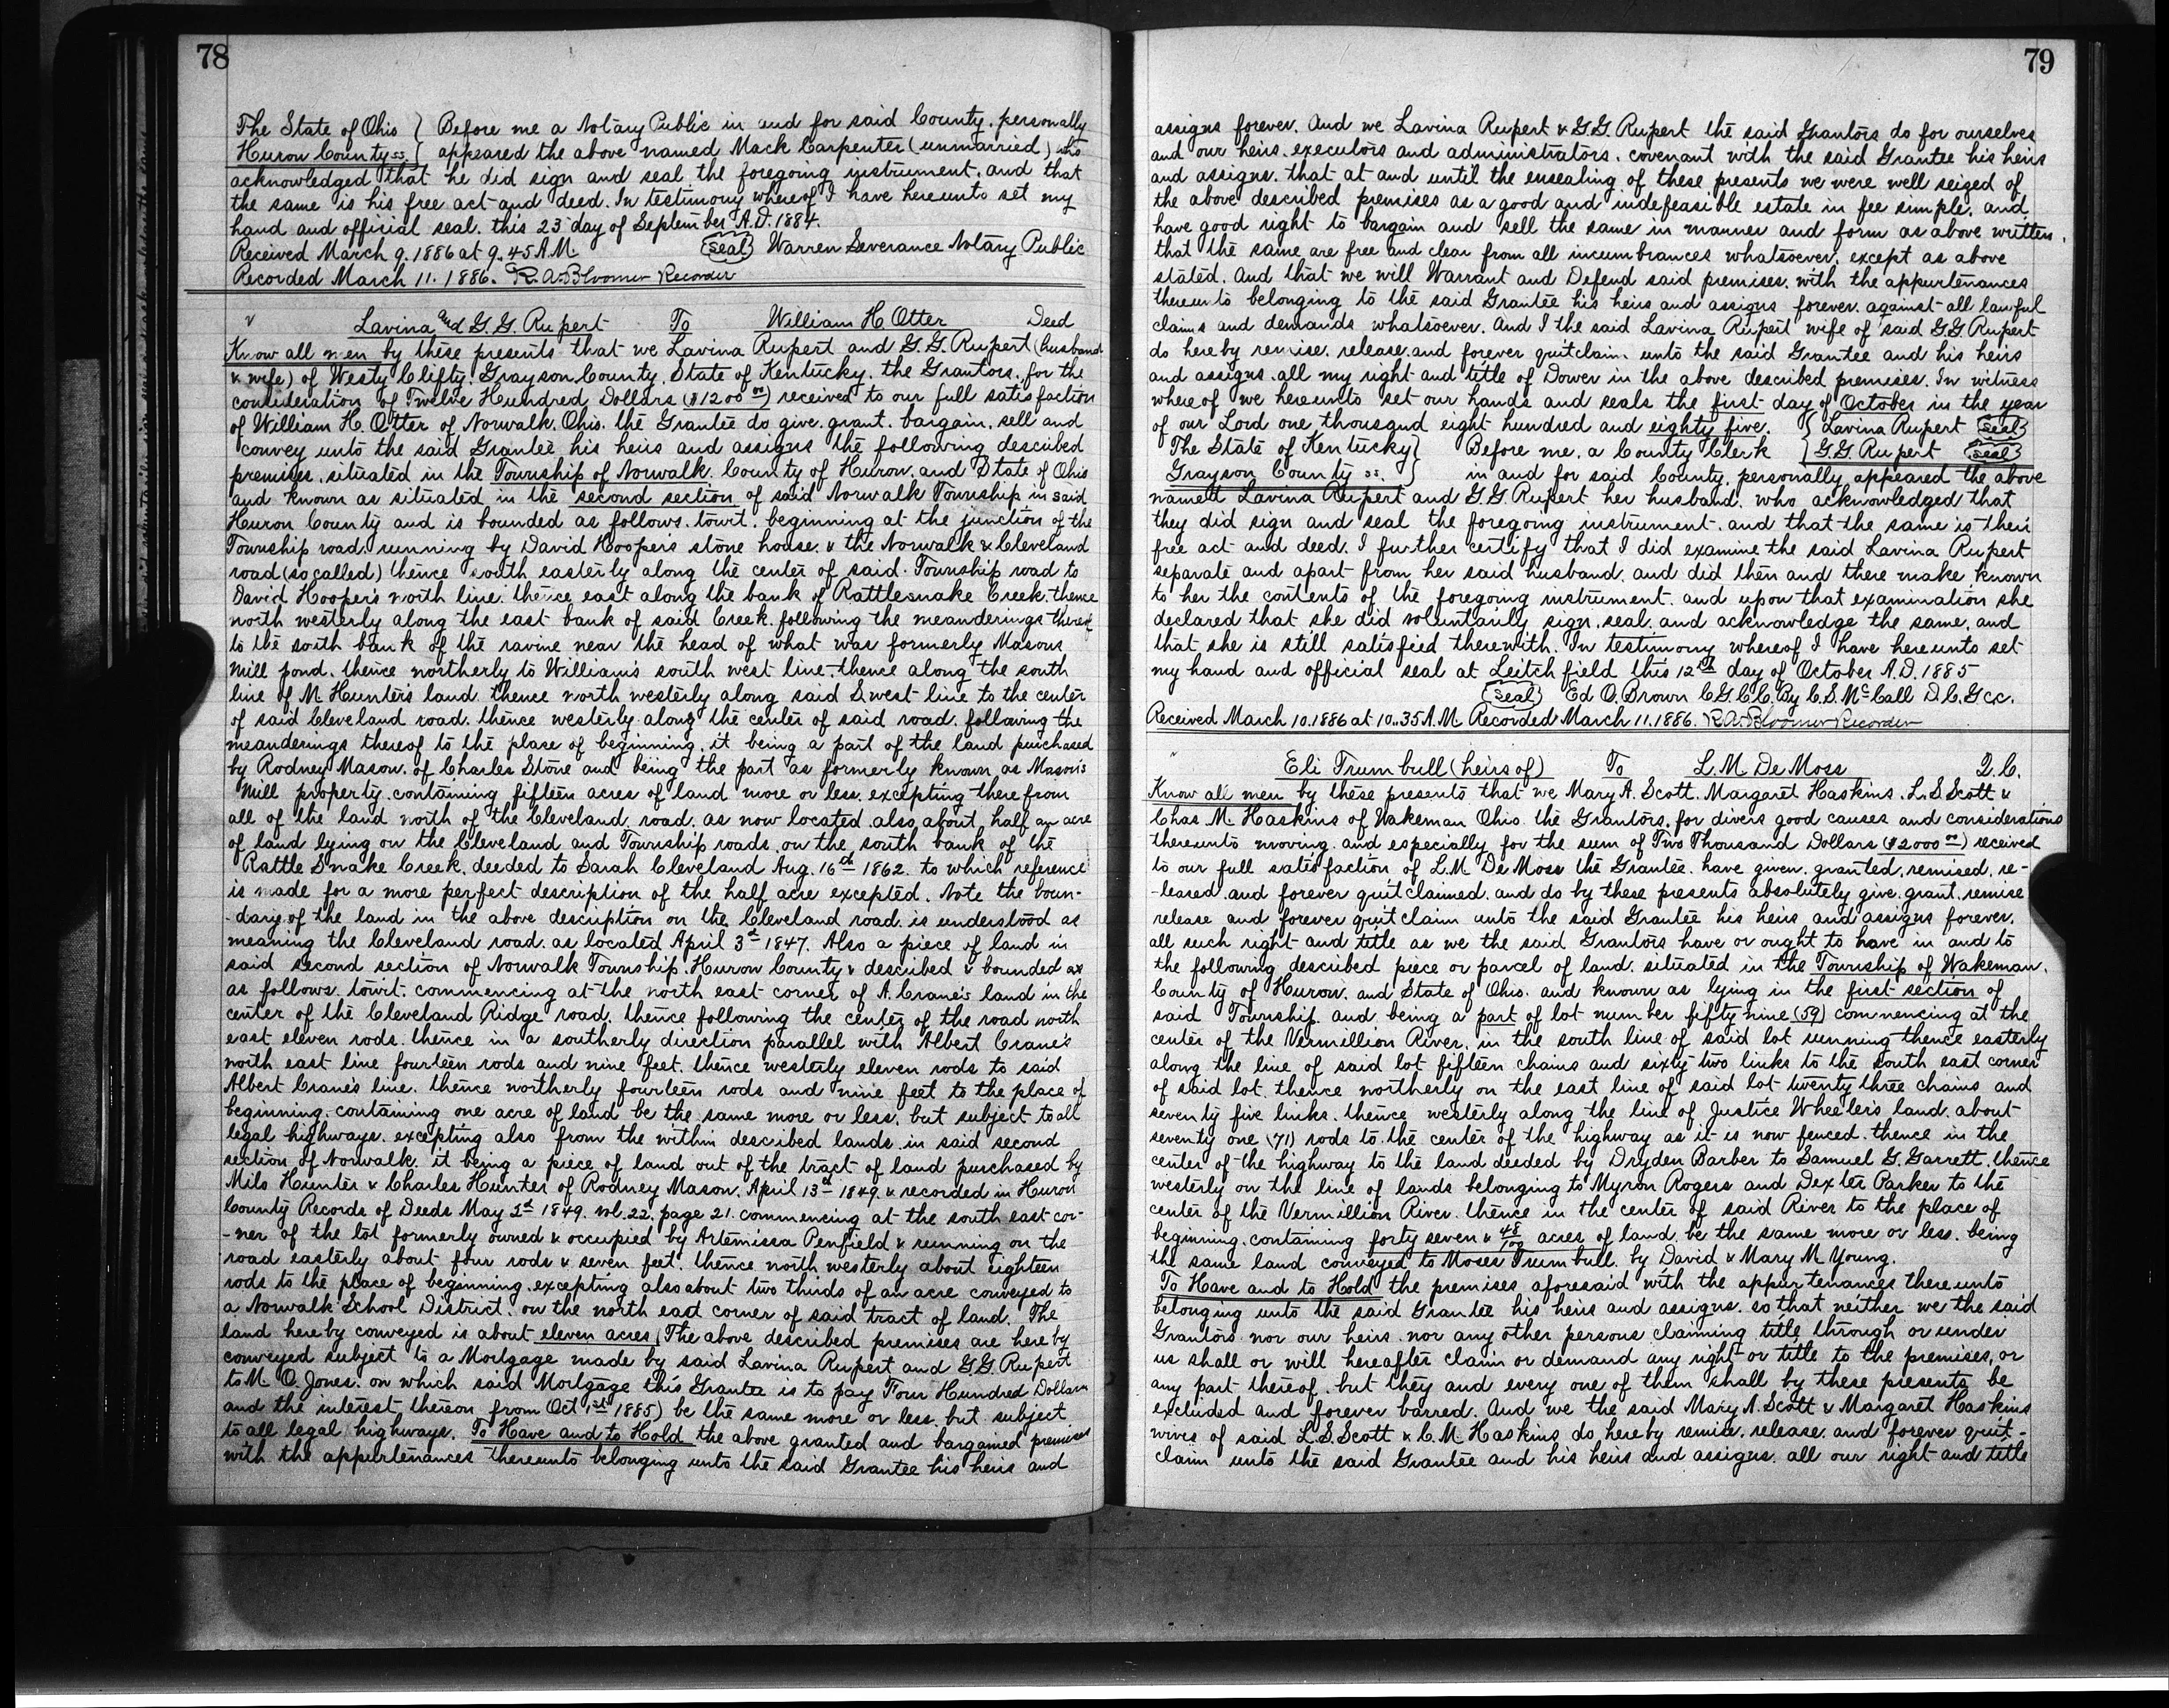 78
The State of Ohio } Before me a Notary Public in and for said County, personally
Huron County ss. } appeared the above named Mack Carpenter (unmarried) who
acknowledged that he did sign and seal the foregoing instrument, and that
the same is his free act and deed. In testimony whereof I have hereunto set my
hand and official seal, this 23 day of September A.D. 1884.
Received March 9, 1886 at 9.45 A.M. (seal) Warren Severance Notary Public
Recorded March 11. 1886. R. A. Bloomer Recorder
Lavina and G. G. Rupert To William H Otter Deed
Know all men by these presents that we Lavina Rupert and G. G. Rupert (husband
& wife) of Westy Clifty, Grayson County, State of Kentucky, the Grantors, for the
consideration of Twelve Hundred Dollars ($1200 00) received to our full satisfaction
of William H. Otter of Norwalk, Ohio, the Grantee do give, grant, bargain, sell and
convey unto the said Grantee his heirs and assigns the following described
premises, situated in the Township of Norwalk, County of Huron, and State of Ohio
and known as situated in the second section of said Norwalk Township in said
Huron County and is bounded as follows, towit, beginning at the junction of the
Township road running by David Hooper's stone house, & the Norwalk & Cleveland
road (so called) thence south easterly along the center of said Township road to
David Hooper's north line, thence east along the bank of Rattlesnake Creek, thence
north westerly along the east bank of said Creek, following the meanderings thereof
to the south bank of the ravine near the head of what was formerly Masons
Mill pond, thence northerly to William's south west line, thence along the south
line of M Hunter's land, thence north westerly along said S. west line to the center
of said Cleveland road, thence westerly along the center of said road, following the
meanderings thereof to the place of beginning, it being a part of the land purchased
by Rodney Mason, of Charles Stone and being the part as formerly known as Mason's
Mill property, containing fifteen acres of land more or less, excepting therefrom
all of the land north of the Cleveland road, as now located, also about half an acre
of land lying on the Cleveland and Township roads, on the south bank of the
Rattle Snake Creek, deeded to Sarah Cleveland Aug. 16th 1862. to which reference
is made for a more perfect description of the half acre excepted. Note the boun-
-dary of the land in the above description on the Cleveland road is understood as
meaning the Cleveland road, as located April 3d 1847. Also a piece of land in
said second section of Norwalk Township, Huron County & described & bounded as
as follows, towit: commencing at the north east corner of A. Crane's land in the
center of the Cleveland Ridge road, thence following the center of the road north
east eleven rods, thence in a southerly direction parallel with Albert Crane's
north east line fourteen rods and nine feet, thence westerly eleven rods to said
Albert Crane's line, thence northerly fourteen rods and nine feet to the place of
beginning, containing one acre of land be the same more or less, but subject to all
legal highways, excepting also from the within described lands, in said second
section of Norwalk, it being a piece of land out of the tract of land purchased by
Milo Hunter & Charles Hunter of Rodney Mason, April 13th 1849, & recorded in Huron
County Records of Deeds May 2d 1849, vol. 22, page 21, commencing at the south east cor-
-ner of the lot formerly owned & occupied by Artemissa Penfield & running on the
road easterly about four rods & seven feet, thence north westerly about eighteen
rods to the place of beginning, excepting also about two thirds of an acre conveyed to
a Norwalk School District, on the north east corner of said tract of land. The
land hereby conveyed is about eleven acres (The above described premises are hereby
conveyed subject to a Mortgage made by said Lavina Rupert and G.G. Rupert
to M. O. Jones, on which said Mortgage this Grantee is to pay Four Hundred Dollars
and the interest thereon from Oct 1st 1885) be the same more or less, but subject
to all legal highways. To Have and to Hold the above granted and bargained premises
with the appurtenances thereunto belonging unto the said Grantee his heirs and
79
assigns forever. And we Lavina Rupert & G.G. Rupert the said Grantors do for ourselves
and our heirs, executors and administrators, covenant with the said Grantee his heirs
and assigns, that at and until the ensealing of these presents we were well seized of
the above described premises as a good and indefeasible estate in fee simple, and
have good right to bargain and sell the same in manner and form as above written,
that the same are free and clear from all incumbrances whatsoever, except as above
stated. And that we will Warrant and Defend said premises, with the appurtenances
thereunto belonging to the said Grantee his heirs and assigns forever, against all lawful
claims and demands whatsoever. And I the said Lavina Rupert wife of said G.G. Rupert
do hereby remise, release, and forever quitclaim unto the said Grantee and his heirs
and assigns all my right and title of Dower in the above described premises. In witness
whereof we hereunto set our hands and seals the first day of October in the year
of our Lord one thousand eight hundred and eighty five. { Lavina Rupert (seal)
The State of Kentucky } Before me, a County Clerk { G.G. Rupert (seal)
Grayson County ss. } in and for said County, personally appeared the above
named Lavina Rupert and G.G Rupert her husband, who acknowledged that
they did sign and seal the foregoing instrument, and that the same is their
free act and deed. I further certify that I did examine the said Lavina Rupert
separate and apart from her said husband, and did then and there make known
to her the contents of the foregoing instrument, and upon that examination she
declared that she did voluntarily sign, seal, and acknowledge the same, and
that she is still satisfied therewith. In testimony whereof I have hereunto set
my hand and official seal at Leitchfield this 12th day of October A.D. 1885
(seal) Ed O. Brown C.G.C.C. By C. S. McCall D.C.G.C.C.
Received March 10, 1886 at 10..35 A.M. Recorded March 11. 1886. R. A. Bloomer Recorder
Eli Trumbull (heirs of) To L. M. De Moss Q. C.
Know all men by these presents that we Mary A. Scott, Margaret Haskins, L. S Scott &
Chas. M. Haskins of Wakeman Ohio, the Grantors, for divers good causes and considerations
thereunto moving, and especially for the sum of Two Thousand Dollars ($2000 00) received
to our full satisfaction of L.M. De Moss the Grantee, have given, granted, remised, re-
-leased and forever quitclaimed, and do by these presents absolutely give, grant, remise
release and forever quitclaim unto the said Grantee his heirs and assigns forever,
all such right and title as we the said Grantors have or ought to have in and to
the following described piece or parcel of land, situated in the Township of Wakeman,
County of Huron, and State of Ohio, and known as lying in the first section of
said Township, and being a part of lot number fifty nine (59) commencing at the
center of the Vermillion River, in the south line of said lot running thence easterly
along the line of said lot fifteen chains and sixty two links to the south east corner
of said lot, thence northerly on the east line of said lot twenty three chains and
seventy five links, thence westerly along the line of Justice Wheeler's land, about
seventy one (71) rods to the center of the highway as it is now fenced, thence in the
center of the highway to the land deeded by Dryden Barber to Samuel G. Garrett, thence
westerly on the line of lands belonging to Myron Rogers and Dexter Parker to the
center of the Vermillion River, thence in the center of said River to the place of
beginning, containing forty seven & 48/100 acres of land, be the same more or less, being
the same land conveyed to Moses Trumbull, by David & Mary M. Young.
To Have and to Hold the premises aforesaid with the appurtenances thereunto
belonging unto the said Grantee his heirs and assigns, so that neither we the said
Grantors nor our heirs, nor any other persons claiming title through or under
us shall or will hereafter claim or demand any right or title to the premises, or
any part thereof, but they and every one of them shall by these presents be
excluded and forever barred. And we the said Mary A. Scott & Margaret Haskins
wives of said L.S. Scott & C. M. Haskins do hereby remise, release and forever quit-
claim unto the said Grantee and his heirs and assigns, all our right and title